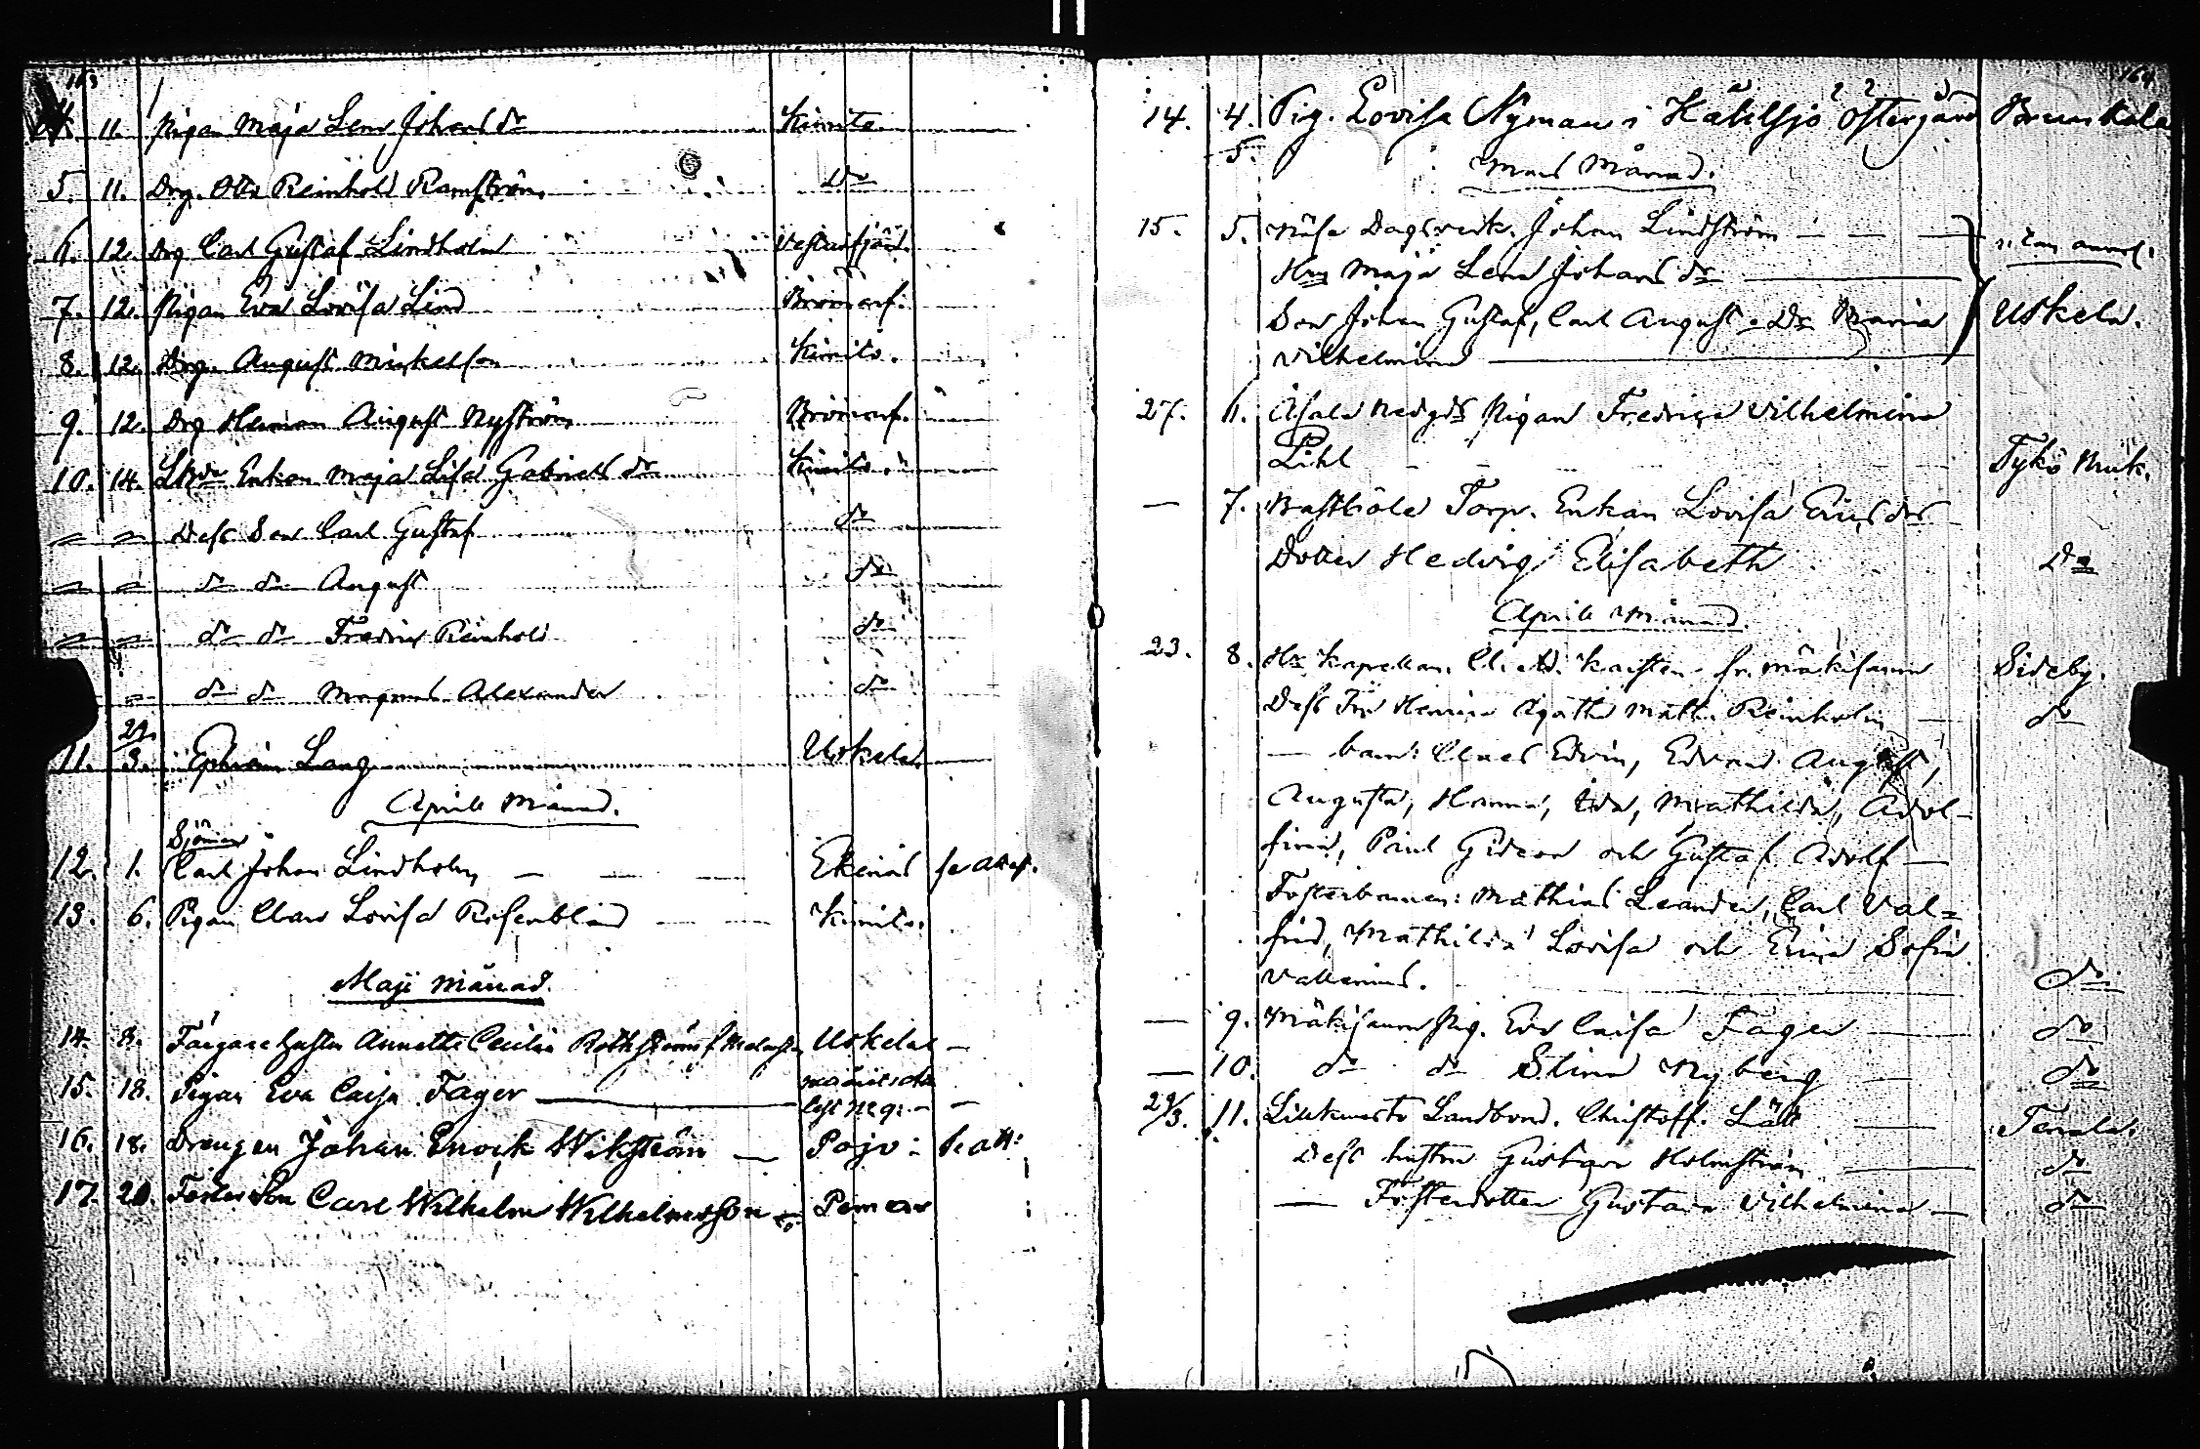 163
4. 11. Pigan Maja Lena Johans dr Kimito
5. 11. Drg. Otto Reinhold Ramström d:o
6. 12. Drg Carl Gustaf Lindholm Vestanfjärd
7. 12. Pigan Eva Lovisa Lind Bromarf.
8. 12. Drg. August Mickelson Kimito.
9. 12. Drg Herman August Nyström Bromarf.
10. 14. Enkan Maja Lisa Gabriels dr Kimito
Dess Son Carl Gustaf do
do do August do
do do Fredric Reinhold do
do do Magnus Alexander do
11. 3. Ephraim Lang Uskela
Aprill Månad.
Sjöman
12. 1. Carl Johan Lindholm Ekenäs se attest.
13. 6. Pigan Clara Lovisa Rosenblad Kimito.
Maji Månad.
14. 8. Färgare hustru Annette Cecilia Rothström f. Uskela
15. 18. Pigan Eva Caisa Fager
16. 18. Drengen Johan Enock Wikström Pojo: se att:
17. 20. Foster Son Carl Wilhelm Wilhelmsson Pemar
164
14. 4. Pig. Lovisa Nyman i Östergård
5. Mars Månad.
15. 5. Johan Lindström
Hru Maja Lena Johans dr
Son Johan Gustaf, Carl August Dr Maria Uskela.
Vilhelmina
27. 6. Pigan Fredrica Vilhelmina
Pihl Tykö Bruk.
7. Torp. Enkan Lovisa Erics dr
Dotter Hedvig Elisabeth Do
Aprill Månad.
23. 8. Hr Kapellan. fr. Mäkisauru Sideby.
Dess Fru Agatha Math. Reinholm do
barn: Claes Edvin, Edvard August,
Augusta, Hanna, Ida, Mathilda, Adol-
fina, Paul Gideon och Gustaf Adolf
Fosterbarnen: Mathias Leander, Carl Val=
frid, Mathilda Lovisa och Erica Sofia
Vallenius. do
9. Pig. Eva Caisa Fager do
10. do do Stina Nyberg do
29/3. 11. Landbond. Christoff. Lätt Tenala.
Dess hustru Gustava Holmström do
Fosterdotter Gustava Vilhelmina do